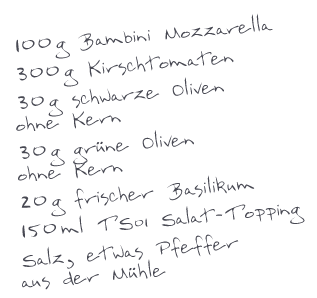 100g Bambini Mozzarella
300g Kirschtomaten
30g schwarze Oliven
ohne Kern
30g grüne Oliven
ohne Kern
20g frischer Basilikum
150ml TSOI Salat-Topping
Salz, etwas Pfeffer
aus der Mühle